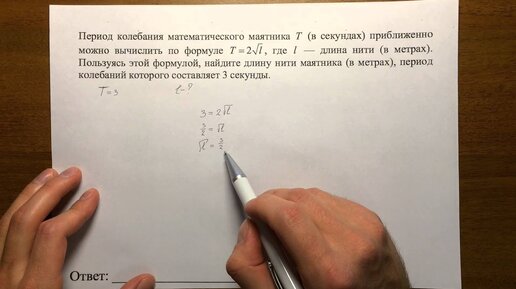 Период колебания математического маятника T (в секундах) приближенно
можно вычислить по формуле T = 2√l, где l — длина нити (в метрах).
Пользуясь этой формулой, найдите длину нити маятника (в метрах), период
колебаний которого составляет 3 секунды.
T=3 l-?
3 = 2√l
3/2 = √l
√l = 3/2
Ответ: